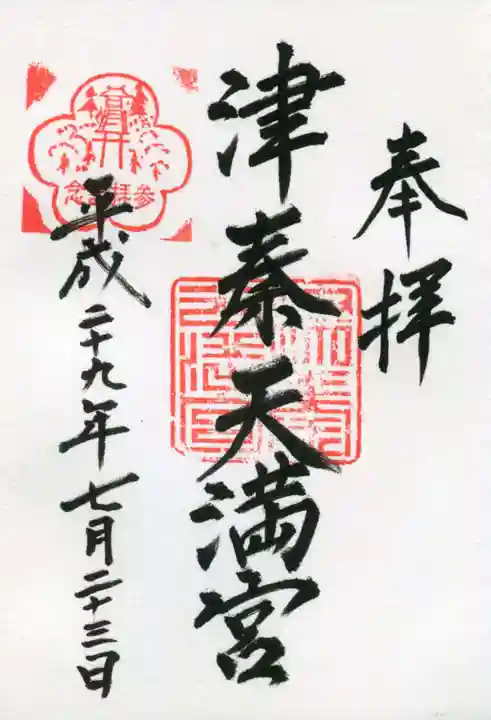 奉拝
津秦天満宮
平成二十九年七月二十三日
参拝記念